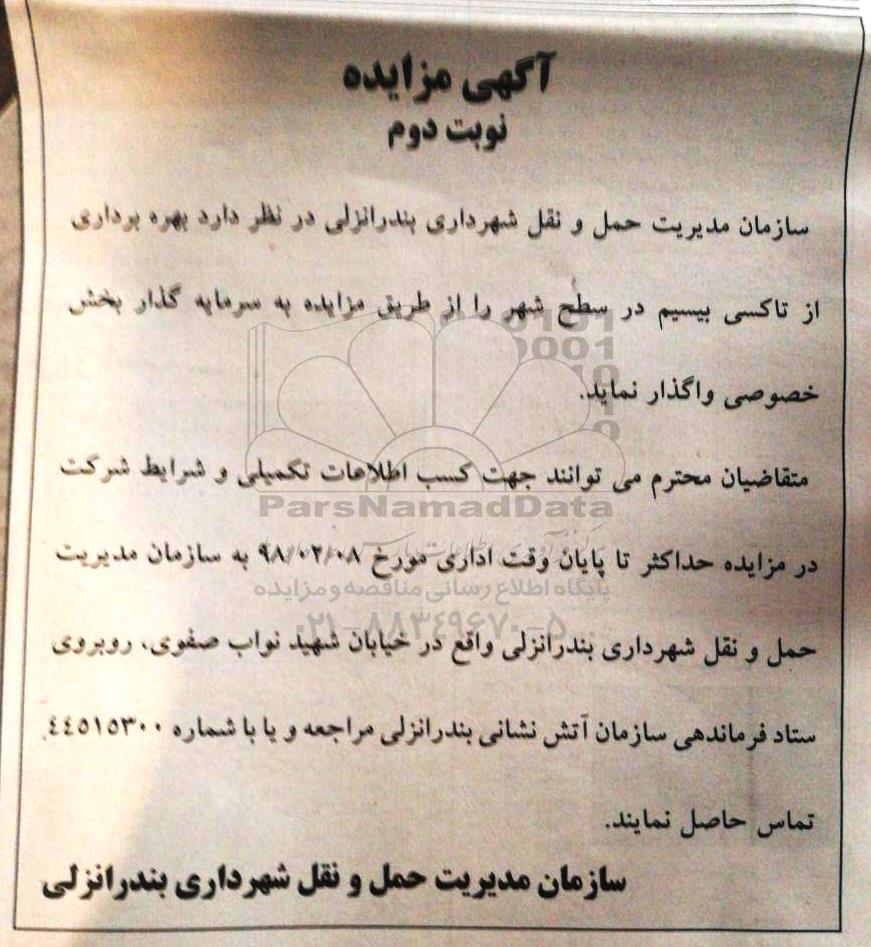 آگهی مزایده
نوبت دوم
سازمان مدیریت حمل و نقل شهرداری بندرانزلی در نظر دارد بهره برداری
از تاکسی بیسیم در سطح شهر را از طریق مزایده به سرمایه گذار بخش
خصوصی واگذار نماید.
متقاضیان محترم می توانند جهت کسب اطلاعات تکمیلی و شرایط شرکت
ParsNamadData
در مزایده حداکثر تا پایان وقت اداری مورخ ۹۸/۰۲/۰۸ به سازمان مدیریت
پایگاه اطلاع رسانی مناقصه و مزایده
۰۲۱-۸۸۳۴۹۶۷۰-۵
حمل و نقل شهرداری بندرانزلی واقع در خیابان شهید نواب صفوی، روبروی
ستاد فرماندهی سازمان آتش نشانی بندرانزلی مراجعه و یا با شماره ۴۴۵۱۵۳۰۰
تماس حاصل نمایند.
سازمان مدیریت حمل و نقل شهرداری بندرانزلی